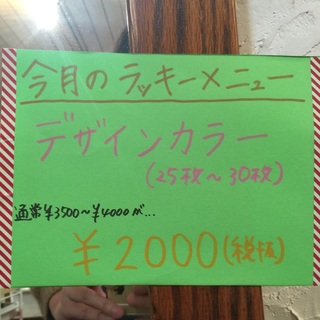 今月のラッキーメニュー
デザインカラー
(25枚～30枚)
通常¥3500～¥4000が...
¥2000(税抜)